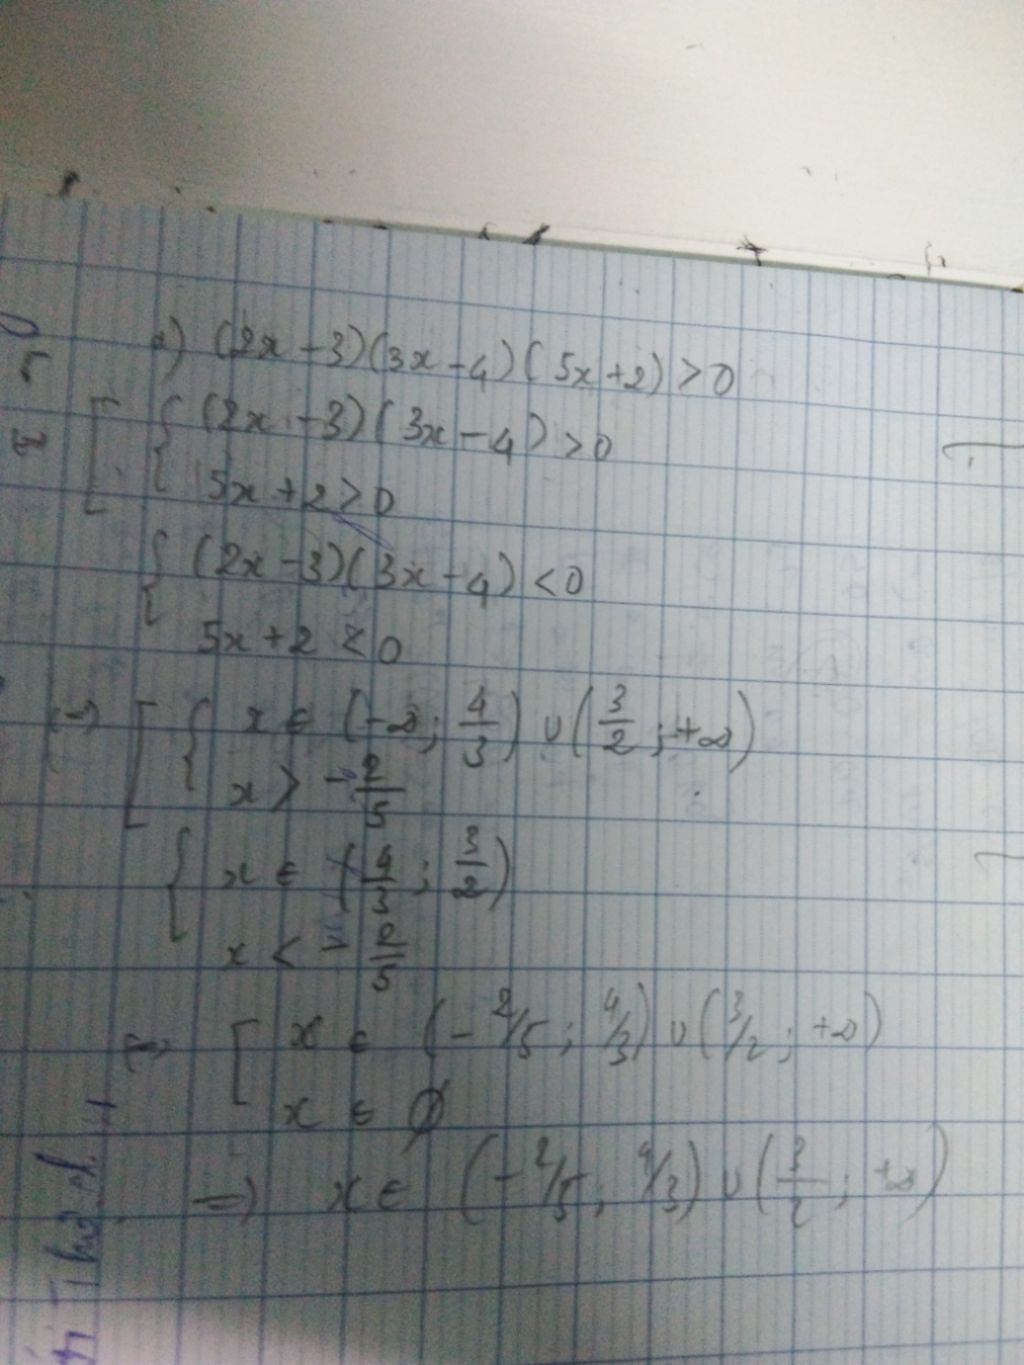 a) (2x - 3)(3x - 4)(5x + 2) > 0
[ { (2x - 3)(3x - 4) > 0
5x + 2 > 0
{ (2x - 3)(3x - 4) < 0
5x + 2 < 0
⇔ [ { x ∈ (-∞; 4/3) ∪ (3/2; +∞)
x > -2/5
{ x ∈ (4/3; 3/2)
x < -2/5
⇔ [ x ∈ (-2/5; 4/3) ∪ (3/2; +∞)
x ∈ ∅
⇒ x ∈ (-2/5; 4/3) ∪ (3/2; +∞)